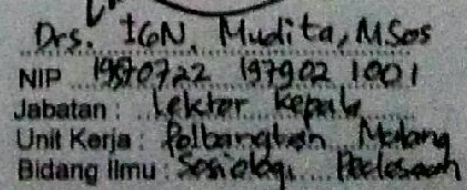 Drs. IGN. Mudita, MSos
NIP 19570722 197902 1001
Jabatan : Lektor Kepala
Unit Kerja : Polbangtan Malang
Bidang Ilmu : Sosiologi Pedesaan